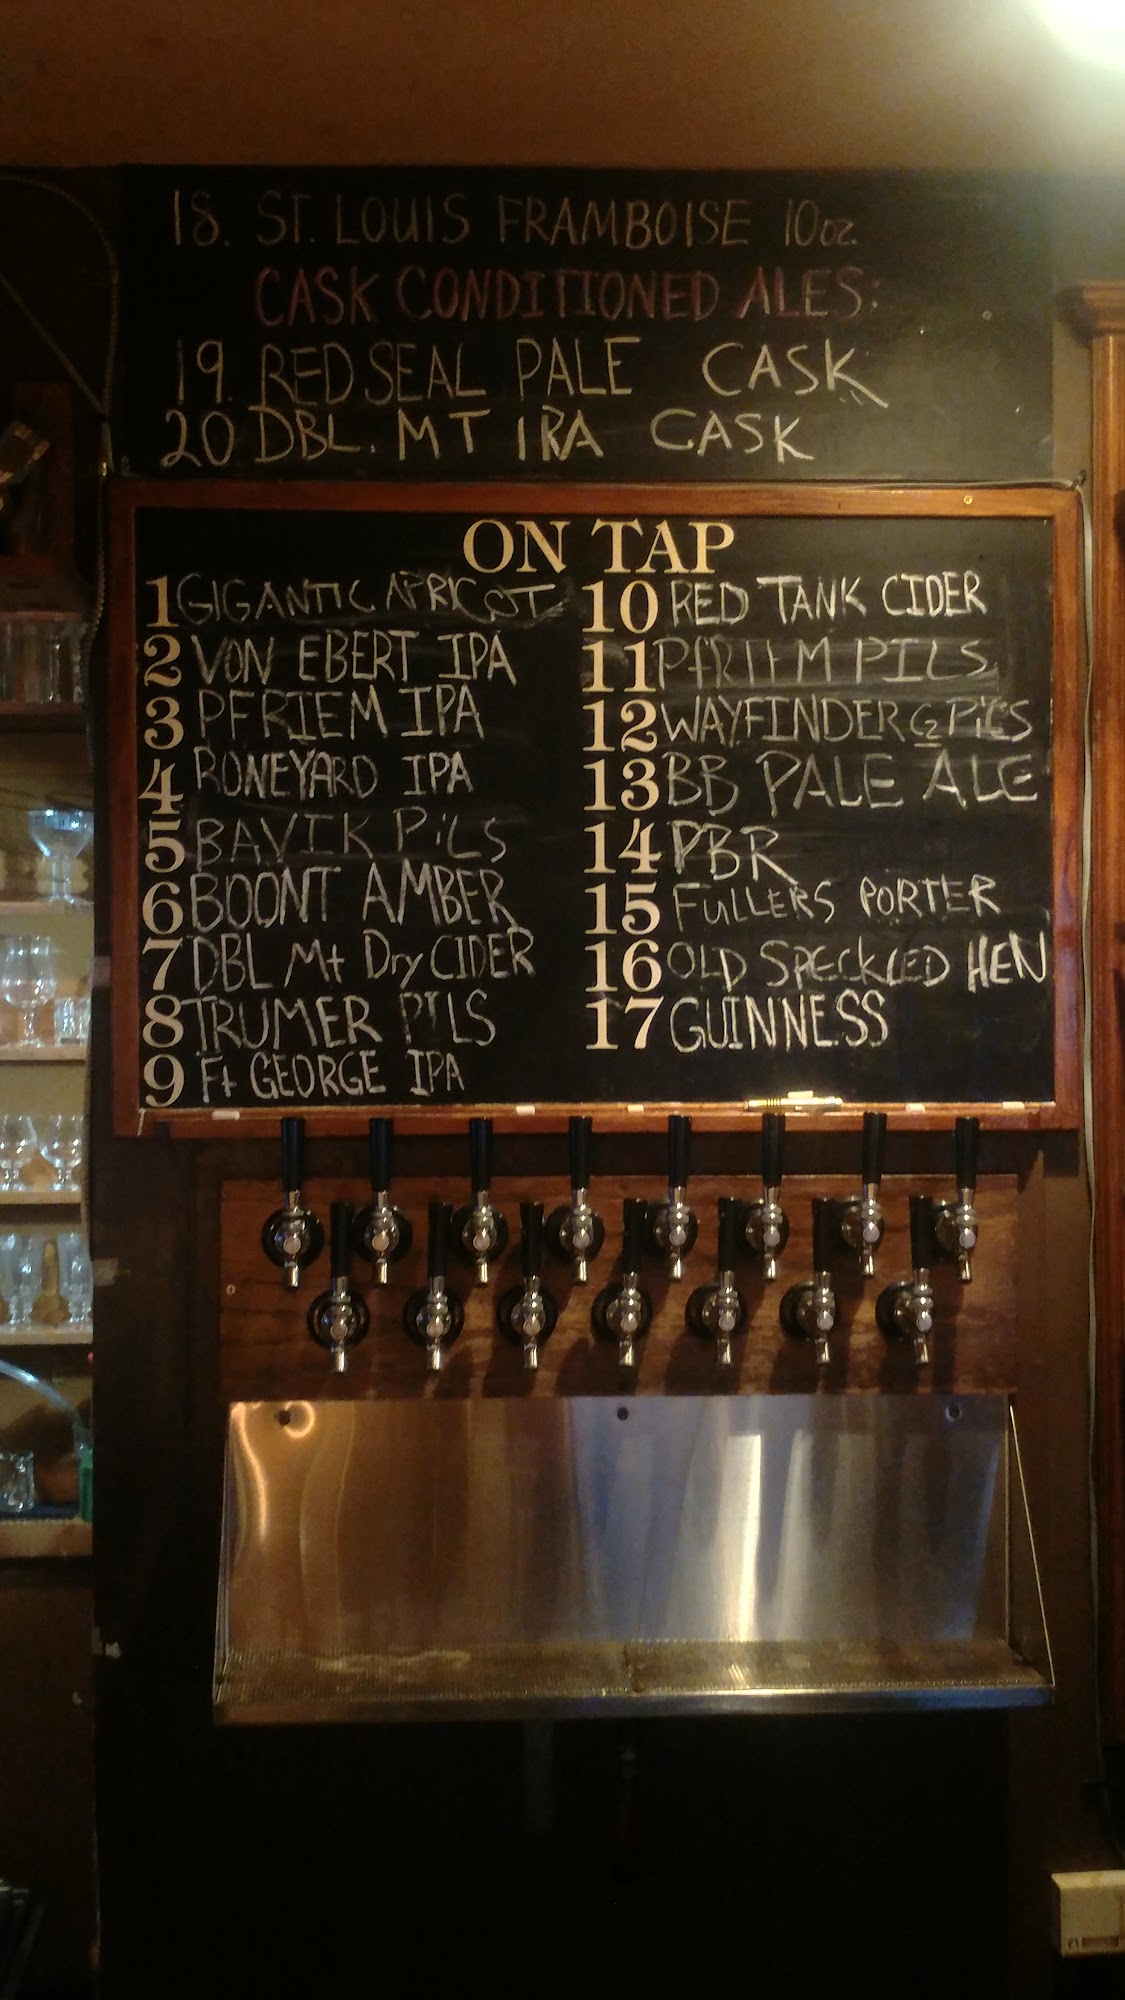 18. ST. LOUIS FRAMBOISE 10oz.
CASK CONDITIONED ALES:
19. RED SEAL PALE CASK
20 DBL. MT IRA CASK
ON TAP
1 GIGANTIC APRICOT
2 VON EBERT IPA
3 PFRIEM IPA
4 BONEYARD IPA
5 BAVIK PiLS
6 BOONT AMBER
7 DBL Mt Dry CIDER
8 TRUMER PILS
9 Ft GEORGE IPA
10 RED TANK CIDER
11 PFRIEM PILS
12 WAYFINDER CZ PiLS
13 BB PALE ALE
14 PBR
15 FuLLERS PORTER
16 OLD SPECKLED HEN
17 GUINNESS